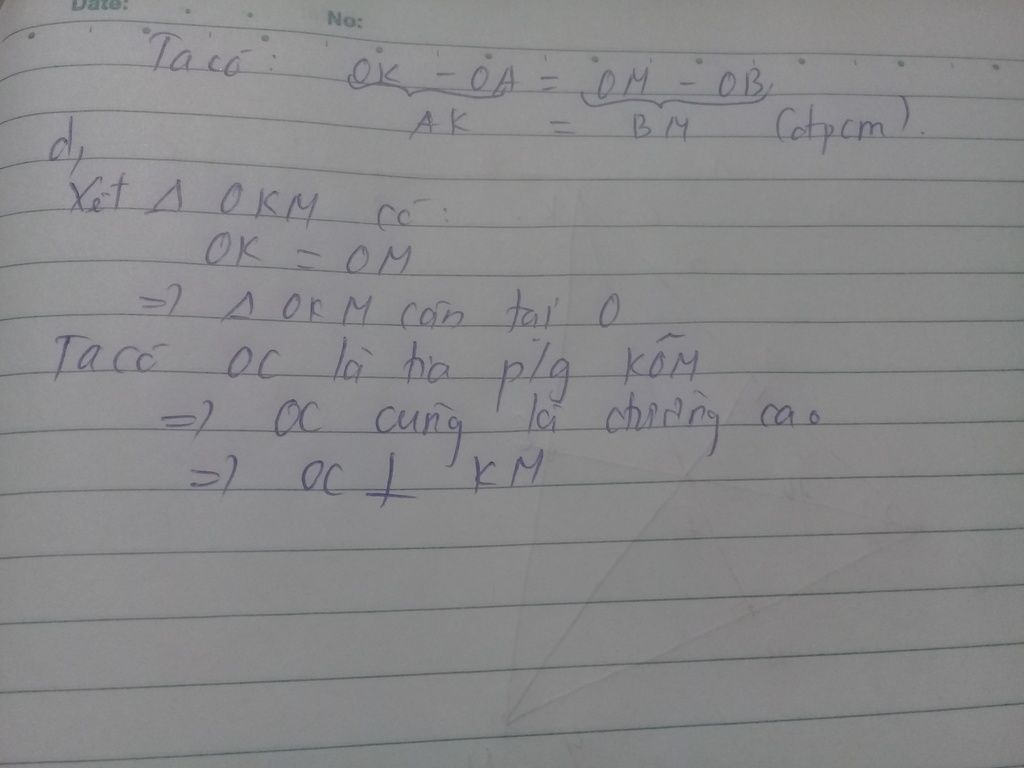 Date:
No:
Ta có: OK - OA = OM - OB
AK = BM (đpcm).
d,
Xét Δ OKM có:
OK = OM
=> Δ OKM cân tại O
Ta có OC là tia p/g KÔM
=> OC cũng là đường cao
=> OC ⊥ KM